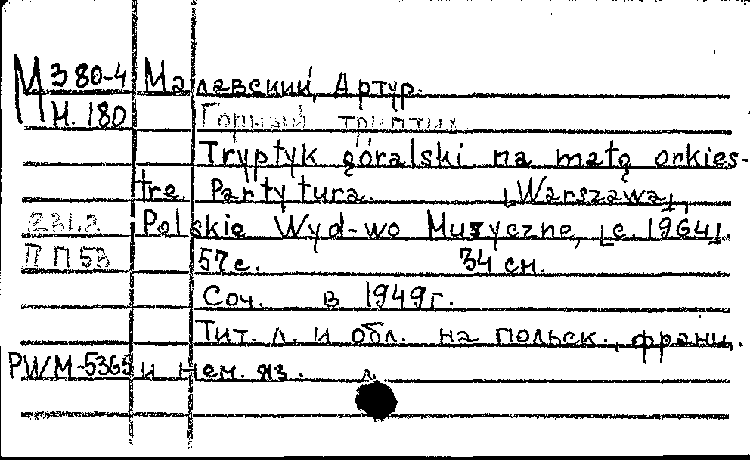 М З 80-4 Малавский, Артур.
Н. 180 Горный триптих
Tryptyk góralski na małą orkies-
trę Partytura. [Warszawa],
231.2 Polskie Wyd-wo Muzyczne, [c. 1964].
П П53 57 с. 34 см.
Соч. в 1949 г.
Тит. л. и обл. на польск., франц.
PWM-5365 и нем. яз.